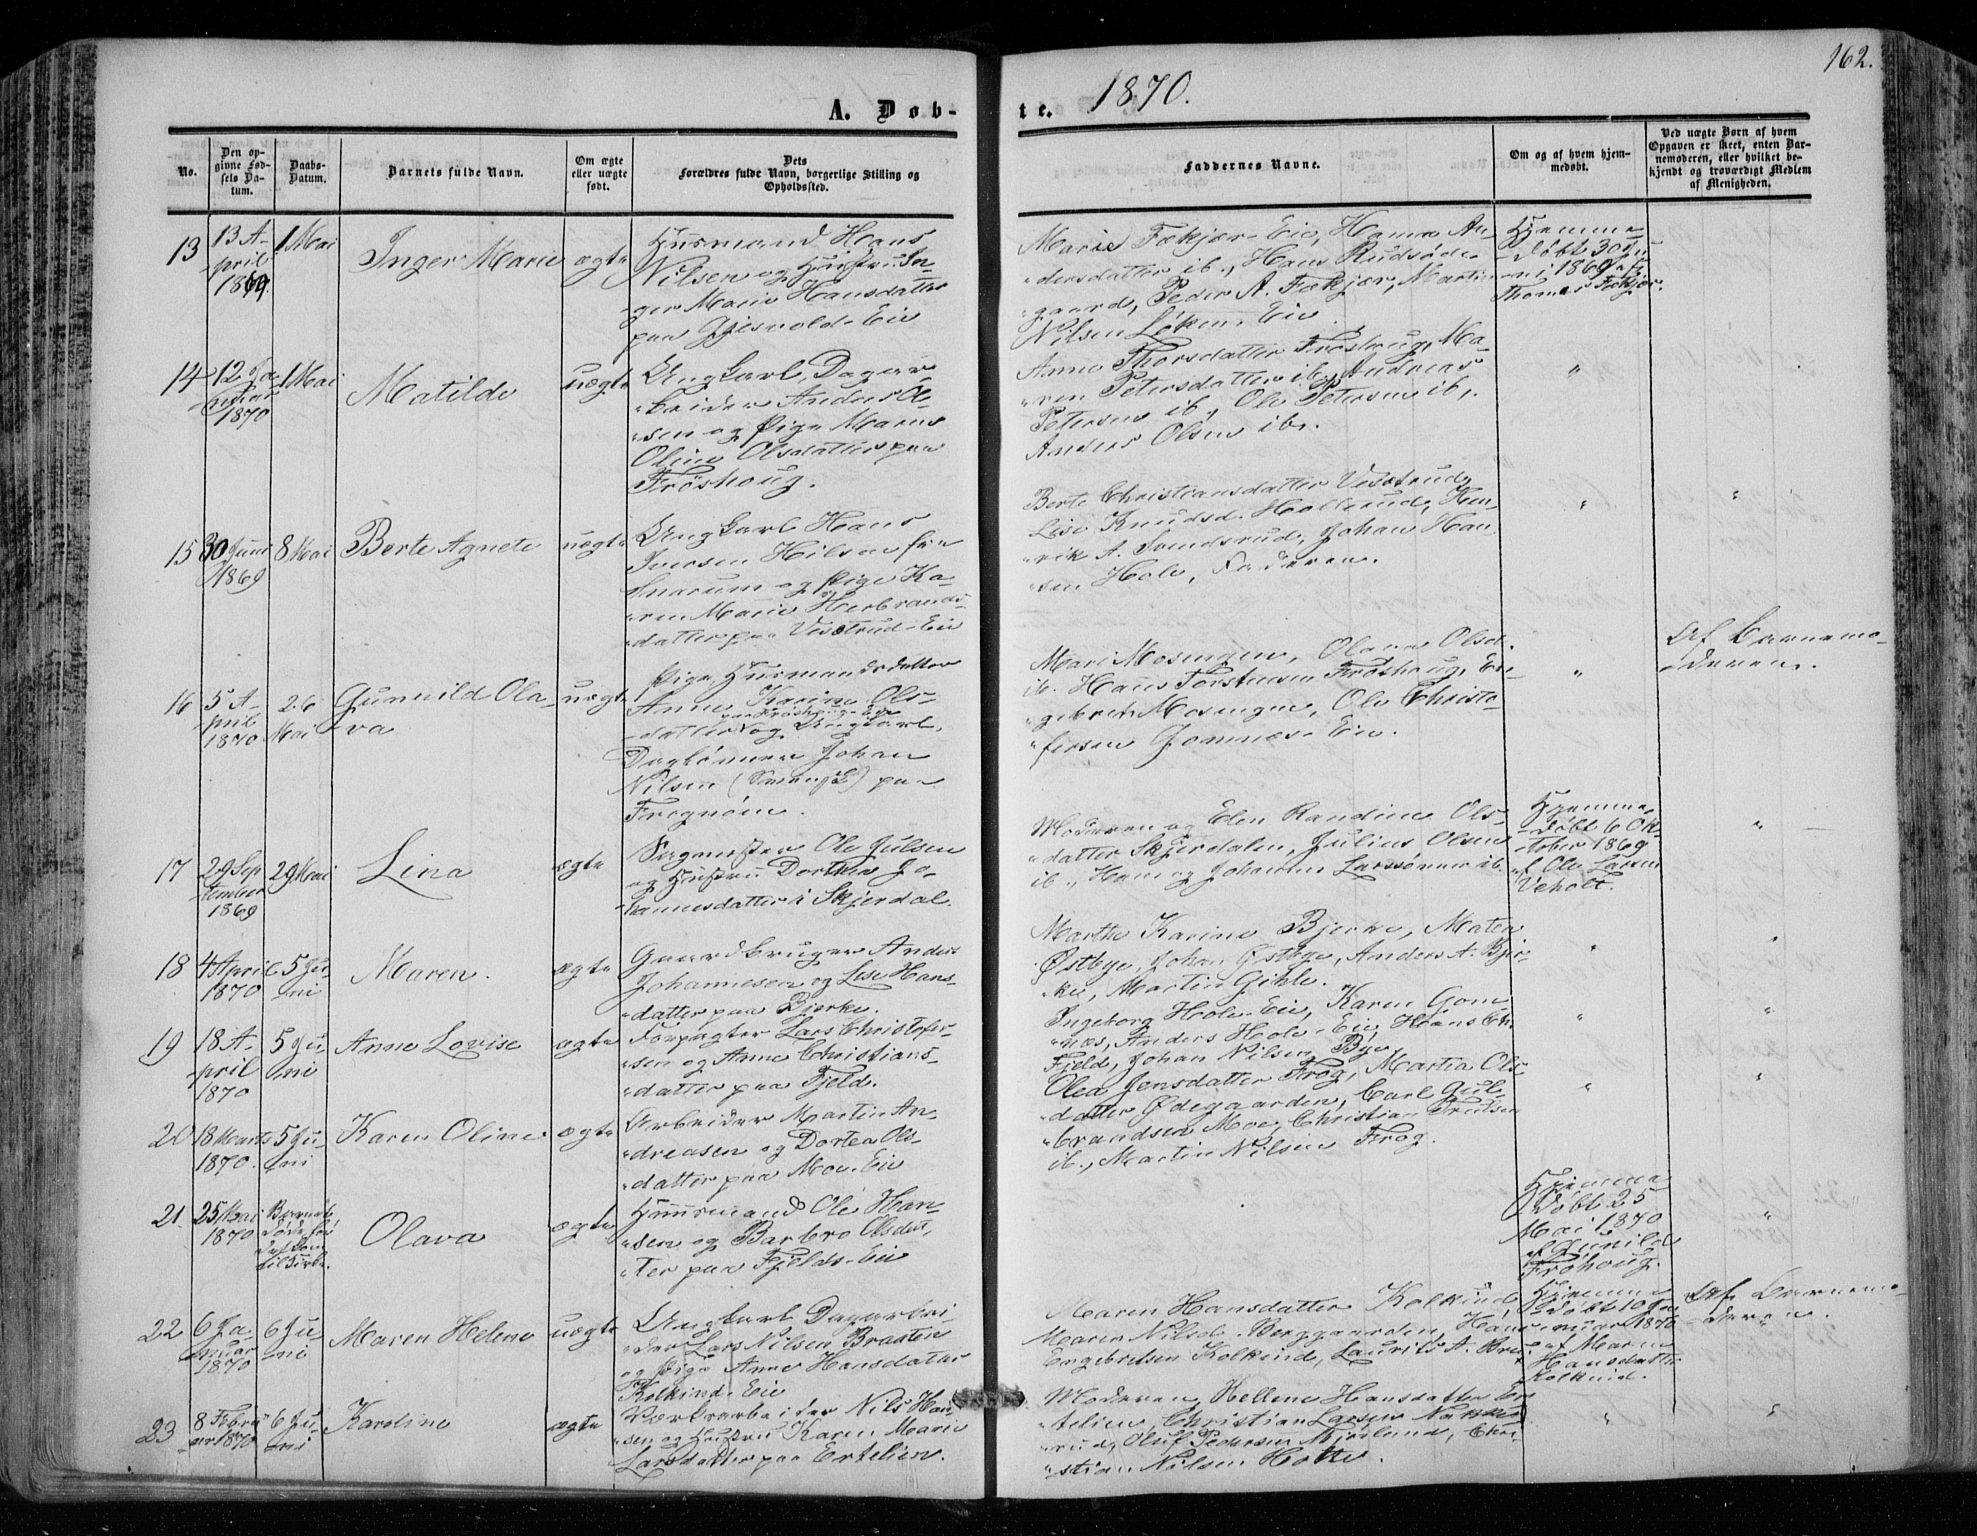 162.
1870.
A. Døb-
te.
No.
Den op-
givne Fød-
sels Da-
tum.
Daabs-
Datum.
Barnets fulde Navn.
Om ægte
eller uægte
født.
Dets
Forældres fulde Navn, borgerlige Stilling og
Opholdssted.
Faddernes Navne.
Om og af hvem hjem-
medøbt.
Ved uægte Børn af hvem
Opgaven er skeet, enten Bar-
nemoderen, eller hvilket be-
kjendt og troværdigt Medlem
af Menigheden.
13
13 A-
pril
1869.
1 Mai
Inger Marie
ægte
Husmand Hans
Nilsen og Hustru In-
ger Marie Hansdatter
paa Gjesvold-Eie
Marie Fækjær-Eie, Hanna An-
dersdatter ib., Hans Rudsøde-
gaard, Peder A. Fækjær, Martin
Nilsen Løken-Eie.
Hjemme-
døbt 30 Ju-
ni 1869 af
Thomas Fækjær.
14
12 Ja-
nuar
1870
1 Mai
Matilde
uægte
Ungkarl, Dagar-
beider Anders Ol-
sen og Pige Maren
Oline Olsdatter paa
Fröshoug.
Anne Thorsdatter Fröshoug, Ma-
ren Petersdatter ib., Andreas
Petersen ib., Ole Petersen ib.,
Anders Olsen ib.
"
15
30 Juni
1869
8 Mai
Berte Agnete
uægte
Ungkarl Hans
Iversen Hilsen fra
Snarum og Pige Ka-
ren Marie Herbrands-
datter paa Vestrud-Eie
Berte Christiansdatter Vestrud,
Lise Knudsd. Hollerud, Hen-
rik A. Svendsrud, Johan Han-
sen Hole, Faderen.
"
"
16
5 A-
pril
1870
26
Mai
Gunnild Ola-
va
uægte
Pige, Husmandsdatter
Anne Karine Ols-
paa Fröshoug-Eie
datter og Ungkarl,
Daglönner Johan
Nilsen (Svensk) paa
Frognöen.
Mari Mosengen, Olava Olsd.
ib. Hans Torstensen Fröshoug, En-
gebret Mosengen, Ole Christo-
fersen Gomnæs-Eie.
"
Af Barnemo-
deren.
17
29 Sep
tember
1869
29 Mai
Lina
ægte
Sagmester Ole Julsen
og Hustru Dorthea Jo-
hannesdatter i Skjerdal.
Moderen og Elen Randine Ols-
datter Skjerdalen, Julius Olsen
ib., Hans og Johannes Larssönner ib.
Hjemme-
døbt 6 Ok-
tober 1869
af Ole Larsen
Veholt.
"
18
4 April
1870
5 Ju-
ni
Maren.
ægte
Gaardbruger Anders
Johannesen og Lise Hans-
datter paa Bjerke.
Marthe Karine Bjerke, Maten
Østbye, Johan Østbye, Anders A. Bjer-
ke, Martin Gihle.
"
"
19
18 A-
pril
1870
5 Ju-
ni
Anne Lovise
ægte
Forpagter Lars Christofer-
sen og Anne Christians-
datter paa Fjeld.
Ingeborg Hole-Eie, Karen Gom-
næs, Anders Hole-Eie, Hans Ch.
Fjeld, Johan Nilsen Bye.
"
"
20
18 Marts
1870.
5 Ju-
ni
Karen Oline
ægte
Arbeider Martin An-
dreasen og Dortea Ols-
datter paa Moe-Eie
Olea Jensdatter Frog, Martia Ols-
datter Ødegaarden, Carl Gul-
brandsen Moe, Christian Trulsen
ib., Martin Nilsen Frog.
"
"
21.
25 Mai
1870
Barnet
døde før
Daaben
Olava
ægte
Huusmand Ole Han-
sen og Barbro Olsdat-
ter paa Fjelds-Eie
Hjemme
døbt 25
Mai 1870
af Gunild
Fröhoug.
"
22
6 Ja-
nuar
1870
6 Ju
ni
Maren Helene
uægte
Ungkarl Dagarbei-
der Lars Nilsen Braaten
og Pige Anne Hansdatter
Kolkind-Eie
Maren Hansdatter Kolkind,
Maren Nilsd. Berggaarden, Hans
Engebretsen Kolkind, Laurits A. Bru
Hjemme
døbt 10 Ja-
nuar 1870
af Maren
Hansdatter
Kolkind.
Af Barnemo-
deren.
23
8 Febru
ar 1870
6 Ju-
ni
Karoline
ægte
Værksarbeider Nils Han-
sen og Hustru Karen Marie
Larsdatter paa Ertelien.
Moderen, Hellene Hansdatter Er-
telien, Christian Larsen Nakke-
rud, Oluf Pedersen Mjørlund, Chri-
stian Nilsen Hotte.
"
"